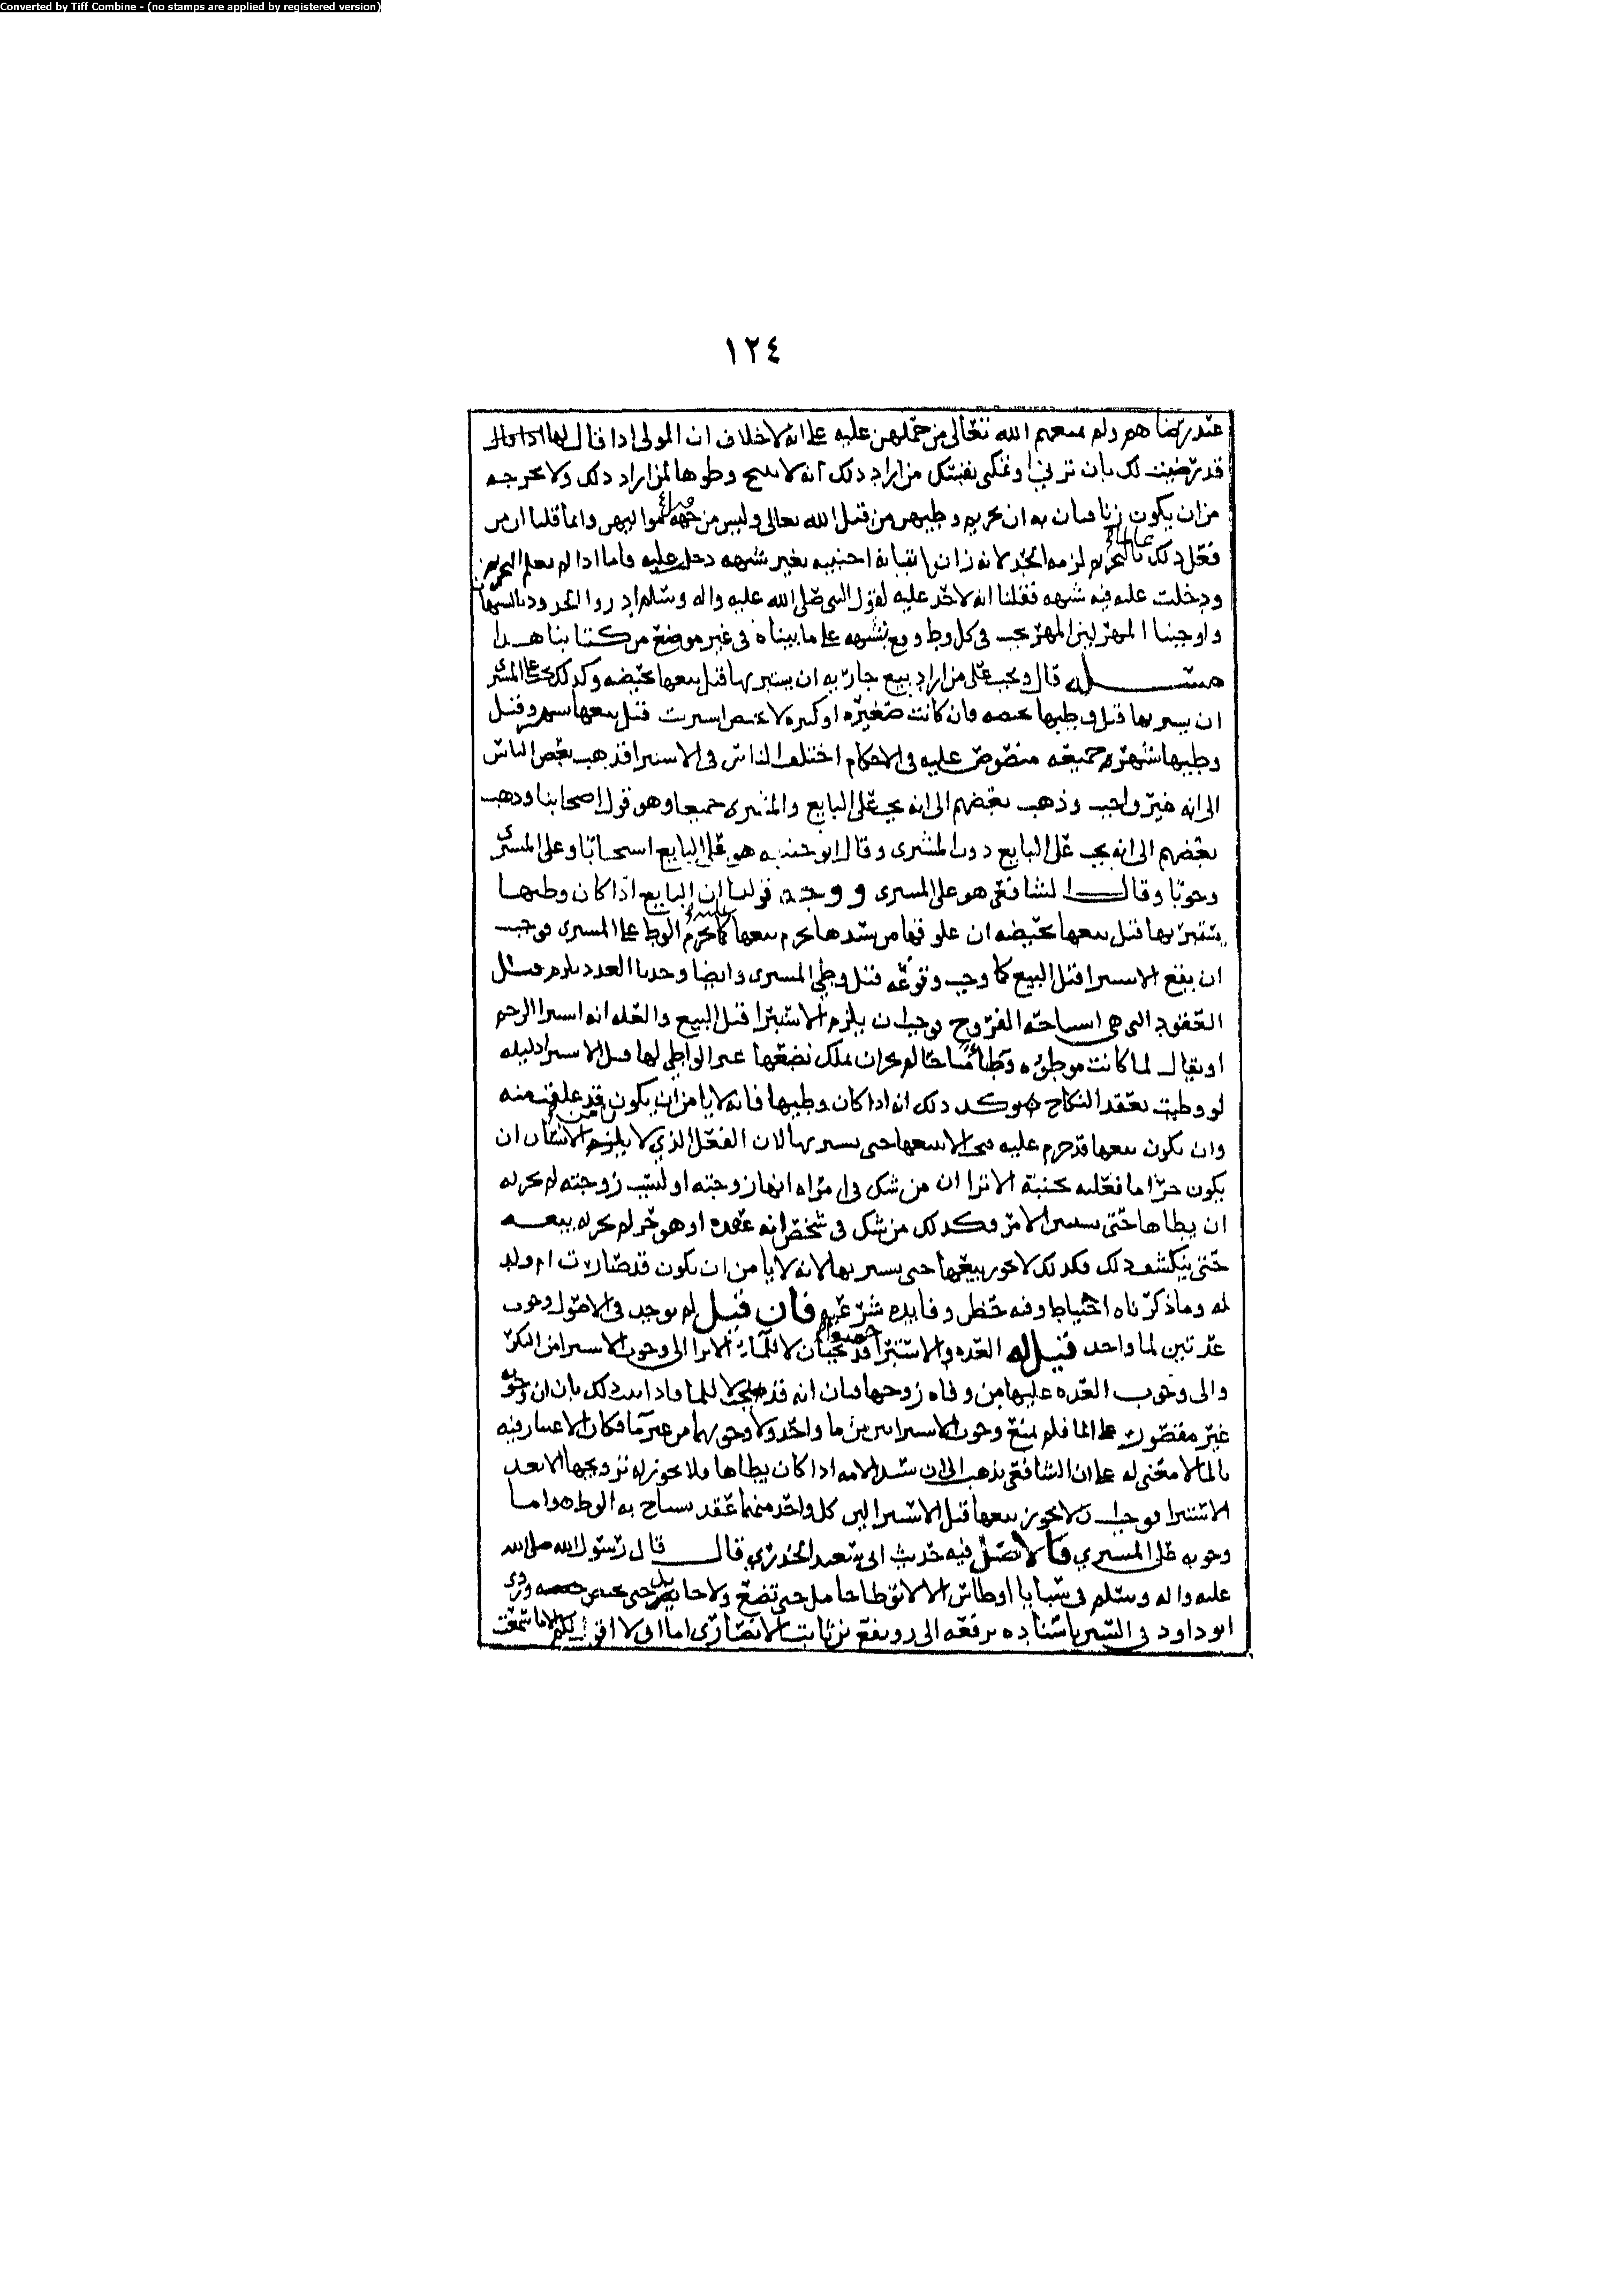 Converted by Tiff Combine - (no stamps are applied by registered version)
١٢٤
عند رضاهم ولم يمنعهم الله تعالى من حملهن عليه على انه لا خلاف ان المولى اذا قال لها
قد رضيت لك بان تزني او تمكني نفسك من اراد ذلك انه لا يبيح وطوها لمن اراد ذلك ولا يخرجه
من ان يكون زنا فبان به ان تحريم وطيهن من قبل الله تعالى وليس من جهة مواليهن وانما قلنا ان من
فعل ذلك عالما بالتحريم لزمه الحد لانه زان باتيانه اجنبيه بغير شبهه دخلت عليه فاما اذا لم يعلم التحريم
ودخلت عليه فيه شبهه فقلنا انه لا حد عليه لقول النبي صلى الله عليه واله وسلم ادروا الحدود بالشبهات
واوجبنا المهر لان المهر يجب في كل وطء وقع بشبهه على ما بيناه في غير موضع من كتابنا هذا
مسئله قال ويجب على من اراد بيع جاريه ان يستبريها قبل بيعها بحيضه وكذلك يجب على المشتري
ان يستبريها قبل وطيها بحيضه فان كانت صغيره او كبيره لا تحيض استبريت قبل بيعها بشهر وقبل
وطيها بشهر وجميعه منصوص عليه في الاحكام اختلف الناس في الاستبرا فذهب بعض الناس
الى انه غير واجب وذهب بعضهم الى انه يجب على البايع والمشتري جميعا وهو قول اصحابنا وذهب
بعضهم الى انه يجب على البايع دون المشتري وقال ابو حنيفه هو على البايع استحبابا وعلى المشتري
وجوبا وقال الشافعي هو على المشتري ووجه قولنا ان البايع اذا كان وطيها
يستبريها قبل بيعها بحيضه ان علوقها من سيدها يحرم بيعها عليه كما يحرم الوطء على المشتري فوجب
ان يقع الاستبرا قبل البيع كما وجب وقوعه قبل وطي المشتري وايضا وجدنا العدد يلزم قبل
العقود التي هي استباحه الفروج فوجب ان يلزم الاستبرا قبل البيع والعله انه استبرا الرحم
او يقال لما كانت موطؤه وطأ مباحا لم يجز ان يملك بضعها غير الواطي لها قبل الاستبرا دليله
لو وطيت بعقد النكاح ويؤكد ذلك انه اذا كان وطيها فانه لا يامن ان يكون قد علقت منه
وان يكون بيعها قد حرم عليه فيجب الا يبيعها حتى يستبريها لان الفعل الذي لا يامن الانسان ان
يكون حراما فعليه تجنبه الا ترا ان من شك في امراه انها زوجته او ليست زوجته لم يجز له
ان يطاها حتى يتبين الامر وكذلك من شك في شخص انه عبده او هو حر لم يجز له بيعه
حتى ينكشف ذلك فكذلك لا يجوز بيعها حتى يستبريها لانه لا يامن ان يكون قد صارت ام ولد
له وما ذكرناه احتياط وفيه حظر وفايده شرعيه فان قيل لم يوجد في الاصول وجوب
عدتين لما واحد قيل له العده والاستبرا قد يجبان جميعا لا للما الا ترا الى وجوب الاستبرا من البكر
والى وجوب العده عليها من وفاه زوجها فبان انه قد يجب لا للما فاذا ثبت ذلك بان ان وجوبه
غير مقصور على الما فلم يمنع وجوب الاستبراين من ما واحد ولا وجوبهما من غير ما فكان الاعتبار فيه
بالما لا معنى له على ان الشافعي يذهب الى ان سيد الامه اذا كان يطاها فلا يجوز له تزويجها الا بعد
الاستبرا فوجب ان لا يجوز بيعها قبل الاستبرا لان كل واحد منهما عقد يستباح به الوطء واما
وجوبه على المشتري فالاصل فيه حديث ابي سعيد الخدري قال قال رسول الله صلى الله
عليه واله وسلم في سبايا اوطاس الا لا توطا حامل حتى تضع ولا حايل حتى تحيض حيضه وروى
ابو داود في السنن باسناده يرفعه الى رويفع بن ثابت الانصاري اما اني لا اقول لكم الا ما سمعت